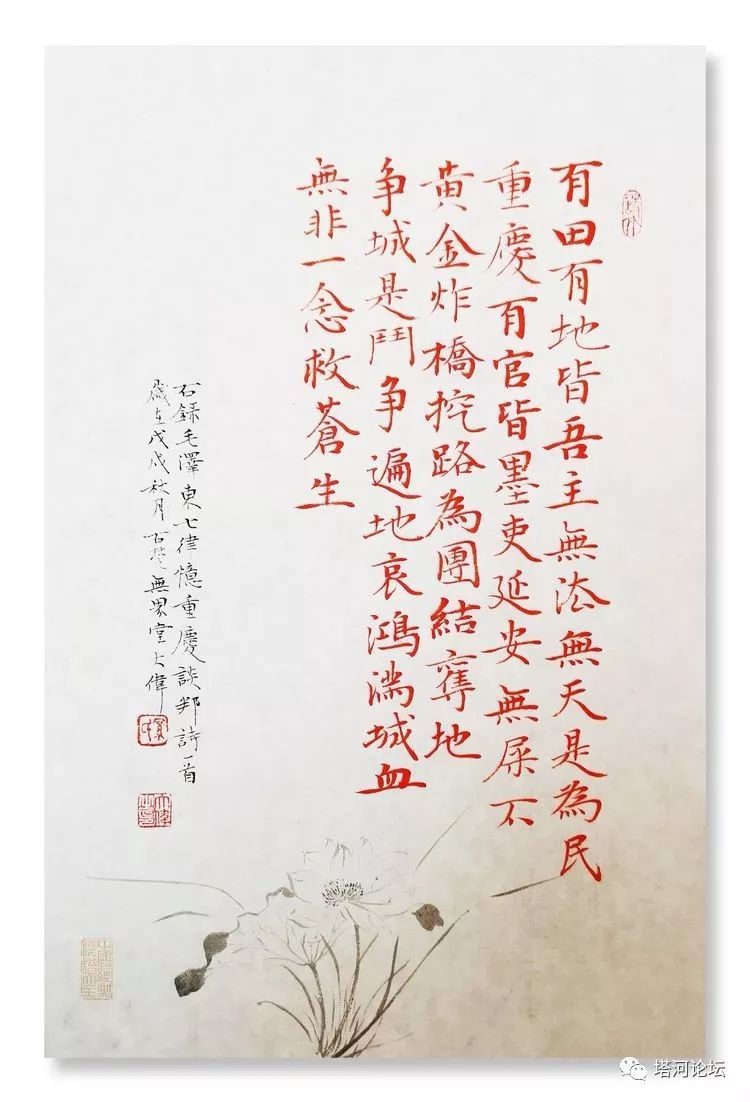 有田有地皆吾主無法無天是為民
重慶有官皆墨吏延安無屎不
黃金炸橋挖路為團結奪地
争城是鬥争遍地哀鴻滿城血
無非一念救蒼生
右録毛澤東七律憶重慶談判詩一首
歲在戊戌秋月古楚無界堂大偉
塔河论坛